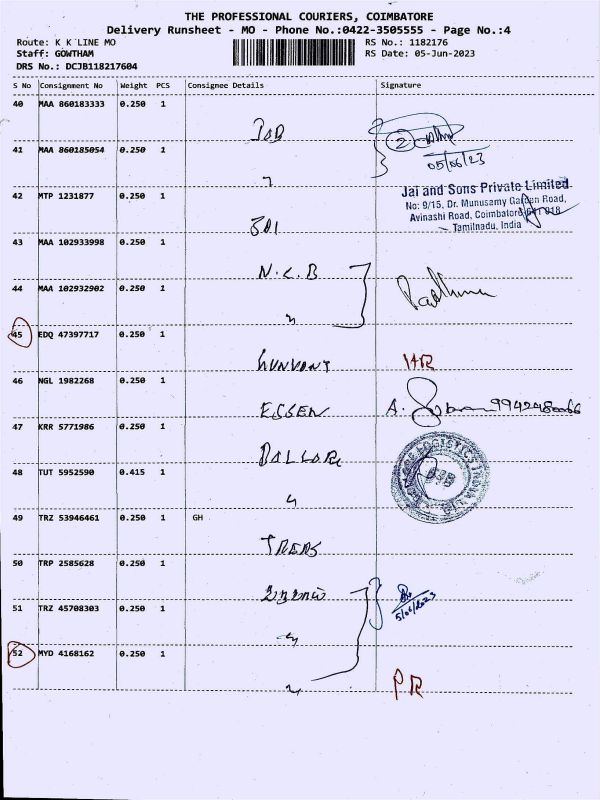 THE PROFESSIONAL COURIERS, COIMBATORE
Delivery Runsheet - MO - Phone No.:0422-3505555 - Page No.:4
Route: K K LINE MO
RS No.: 1182176
Staff: GOWTHAM
RS Date: 05-Jun-2023
DRS No.: DCJB118217604
S No Consignment No Weight PCS Consignee Details Signature
40 MAA 860183333 0.250 1
JOB
2
41 MAA 860185054 0.250 1
05/06/23
Jai and Sons Private Limited
No: 9/15, Dr. Munusamy Garden Road,
Avinashi Road, Coimbatore
Tamilnadu, India
42 MTP 1231877 0.250 1
JAI
43 MAA 102933998 0.250 1
N.C.B
44 MAA 102932902 0.250 1
45 EDQ 47397717 0.250 1
46 NGL 1982268 0.250 1
ESSEN
47 KRR 5771986 0.250 1
48 TUT 5952590 0.415 1
49 TRZ 53946461 0.250 1 GH
50 TRP 2585628 0.250 1
5/06/2023
51 TRZ 45708303 0.250 1
52 MYD 4168162 0.250 1
PR